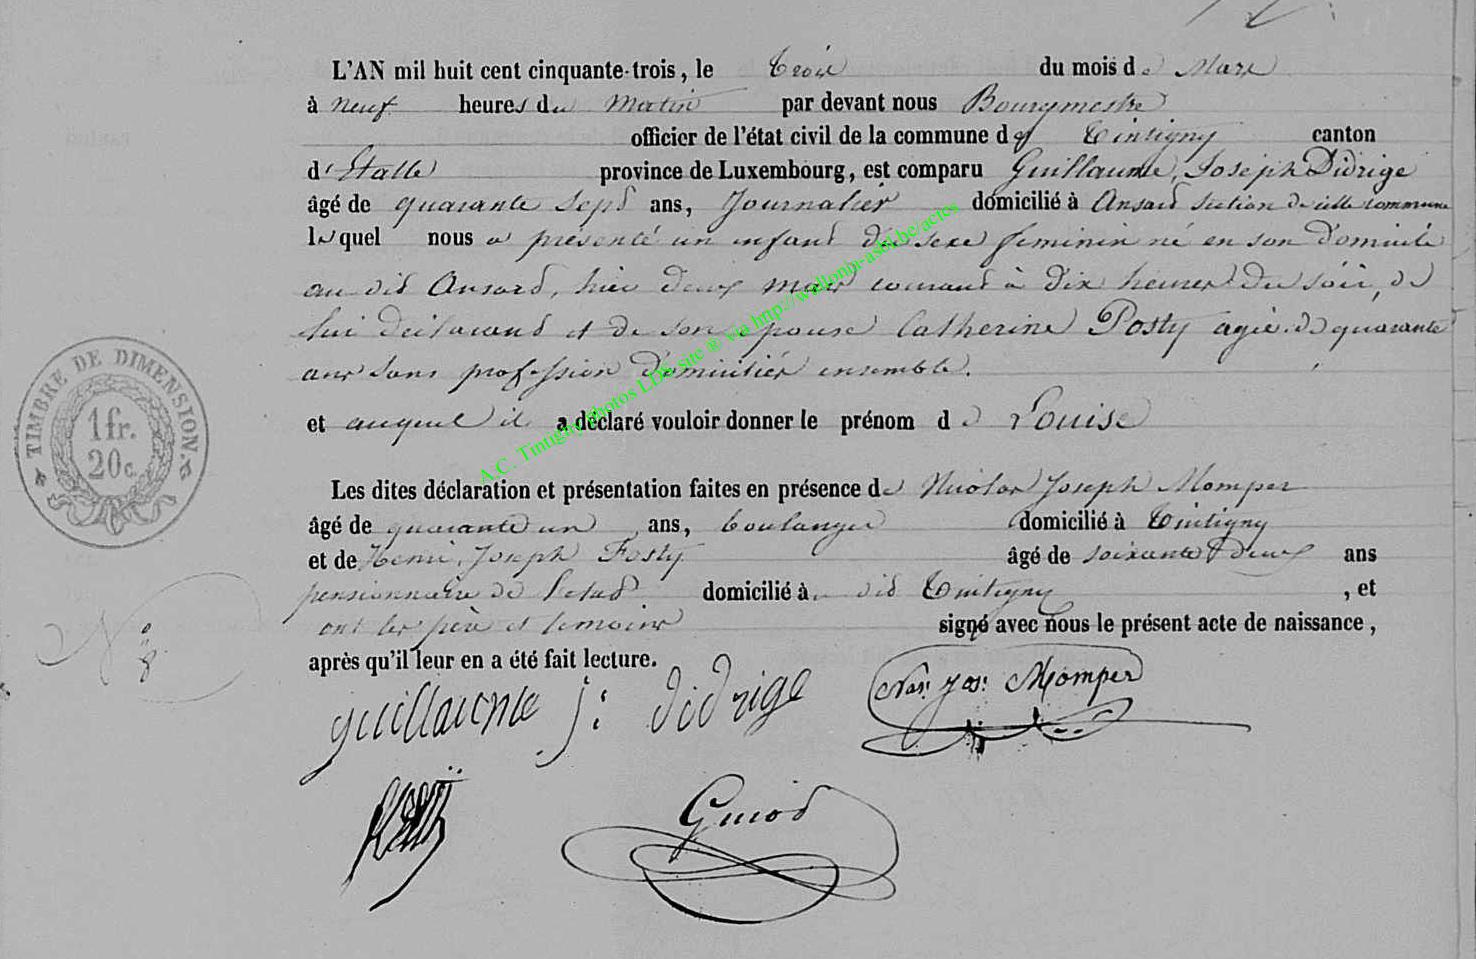 L'AN mil huit cent cinquante-trois, le trois du mois de Mars
à neuf heures du matin par devant nous Bourgmestre
officier de l'état civil de la commune de Tintigny canton
d'Etalle province de Luxembourg, est comparu Guillaume, Joseph Didrige
âgé de quarante sept ans, Journalier domicilié à Ansard section de cette commune
lequel nous a présenté un enfant du sexe feminin né en son domicile
au dit Ansard, hier deux mars courant à dix heures du soir, de
lui déclarant et de son épouse Catherine Posty agée de quarante
ans sans profession domiciliés ensemble.
et auquel il a déclaré vouloir donner le prénom de Louise
Les dites déclaration et présentation faites en présence de Nicolas Joseph Momper
âgé de quarante un ans, boulanger domicilié à Tintigny
et de Henri, Joseph Fosty âgé de soixante deux ans
pensionnaire de l'etat domicilié à dit Tintigny , et
ont les père et temoins signé avec nous le présent acte de naissance,
après qu'il leur en a été fait lecture.
N° 8
guillaume j: didrige
Nas: Jos: Momper
Guiot
TIMBRE DE DIMENSION.
1 fr.
20 c.
A.C. Tintigny photos LDS site ® via http://wallonia-asbl.be/actes